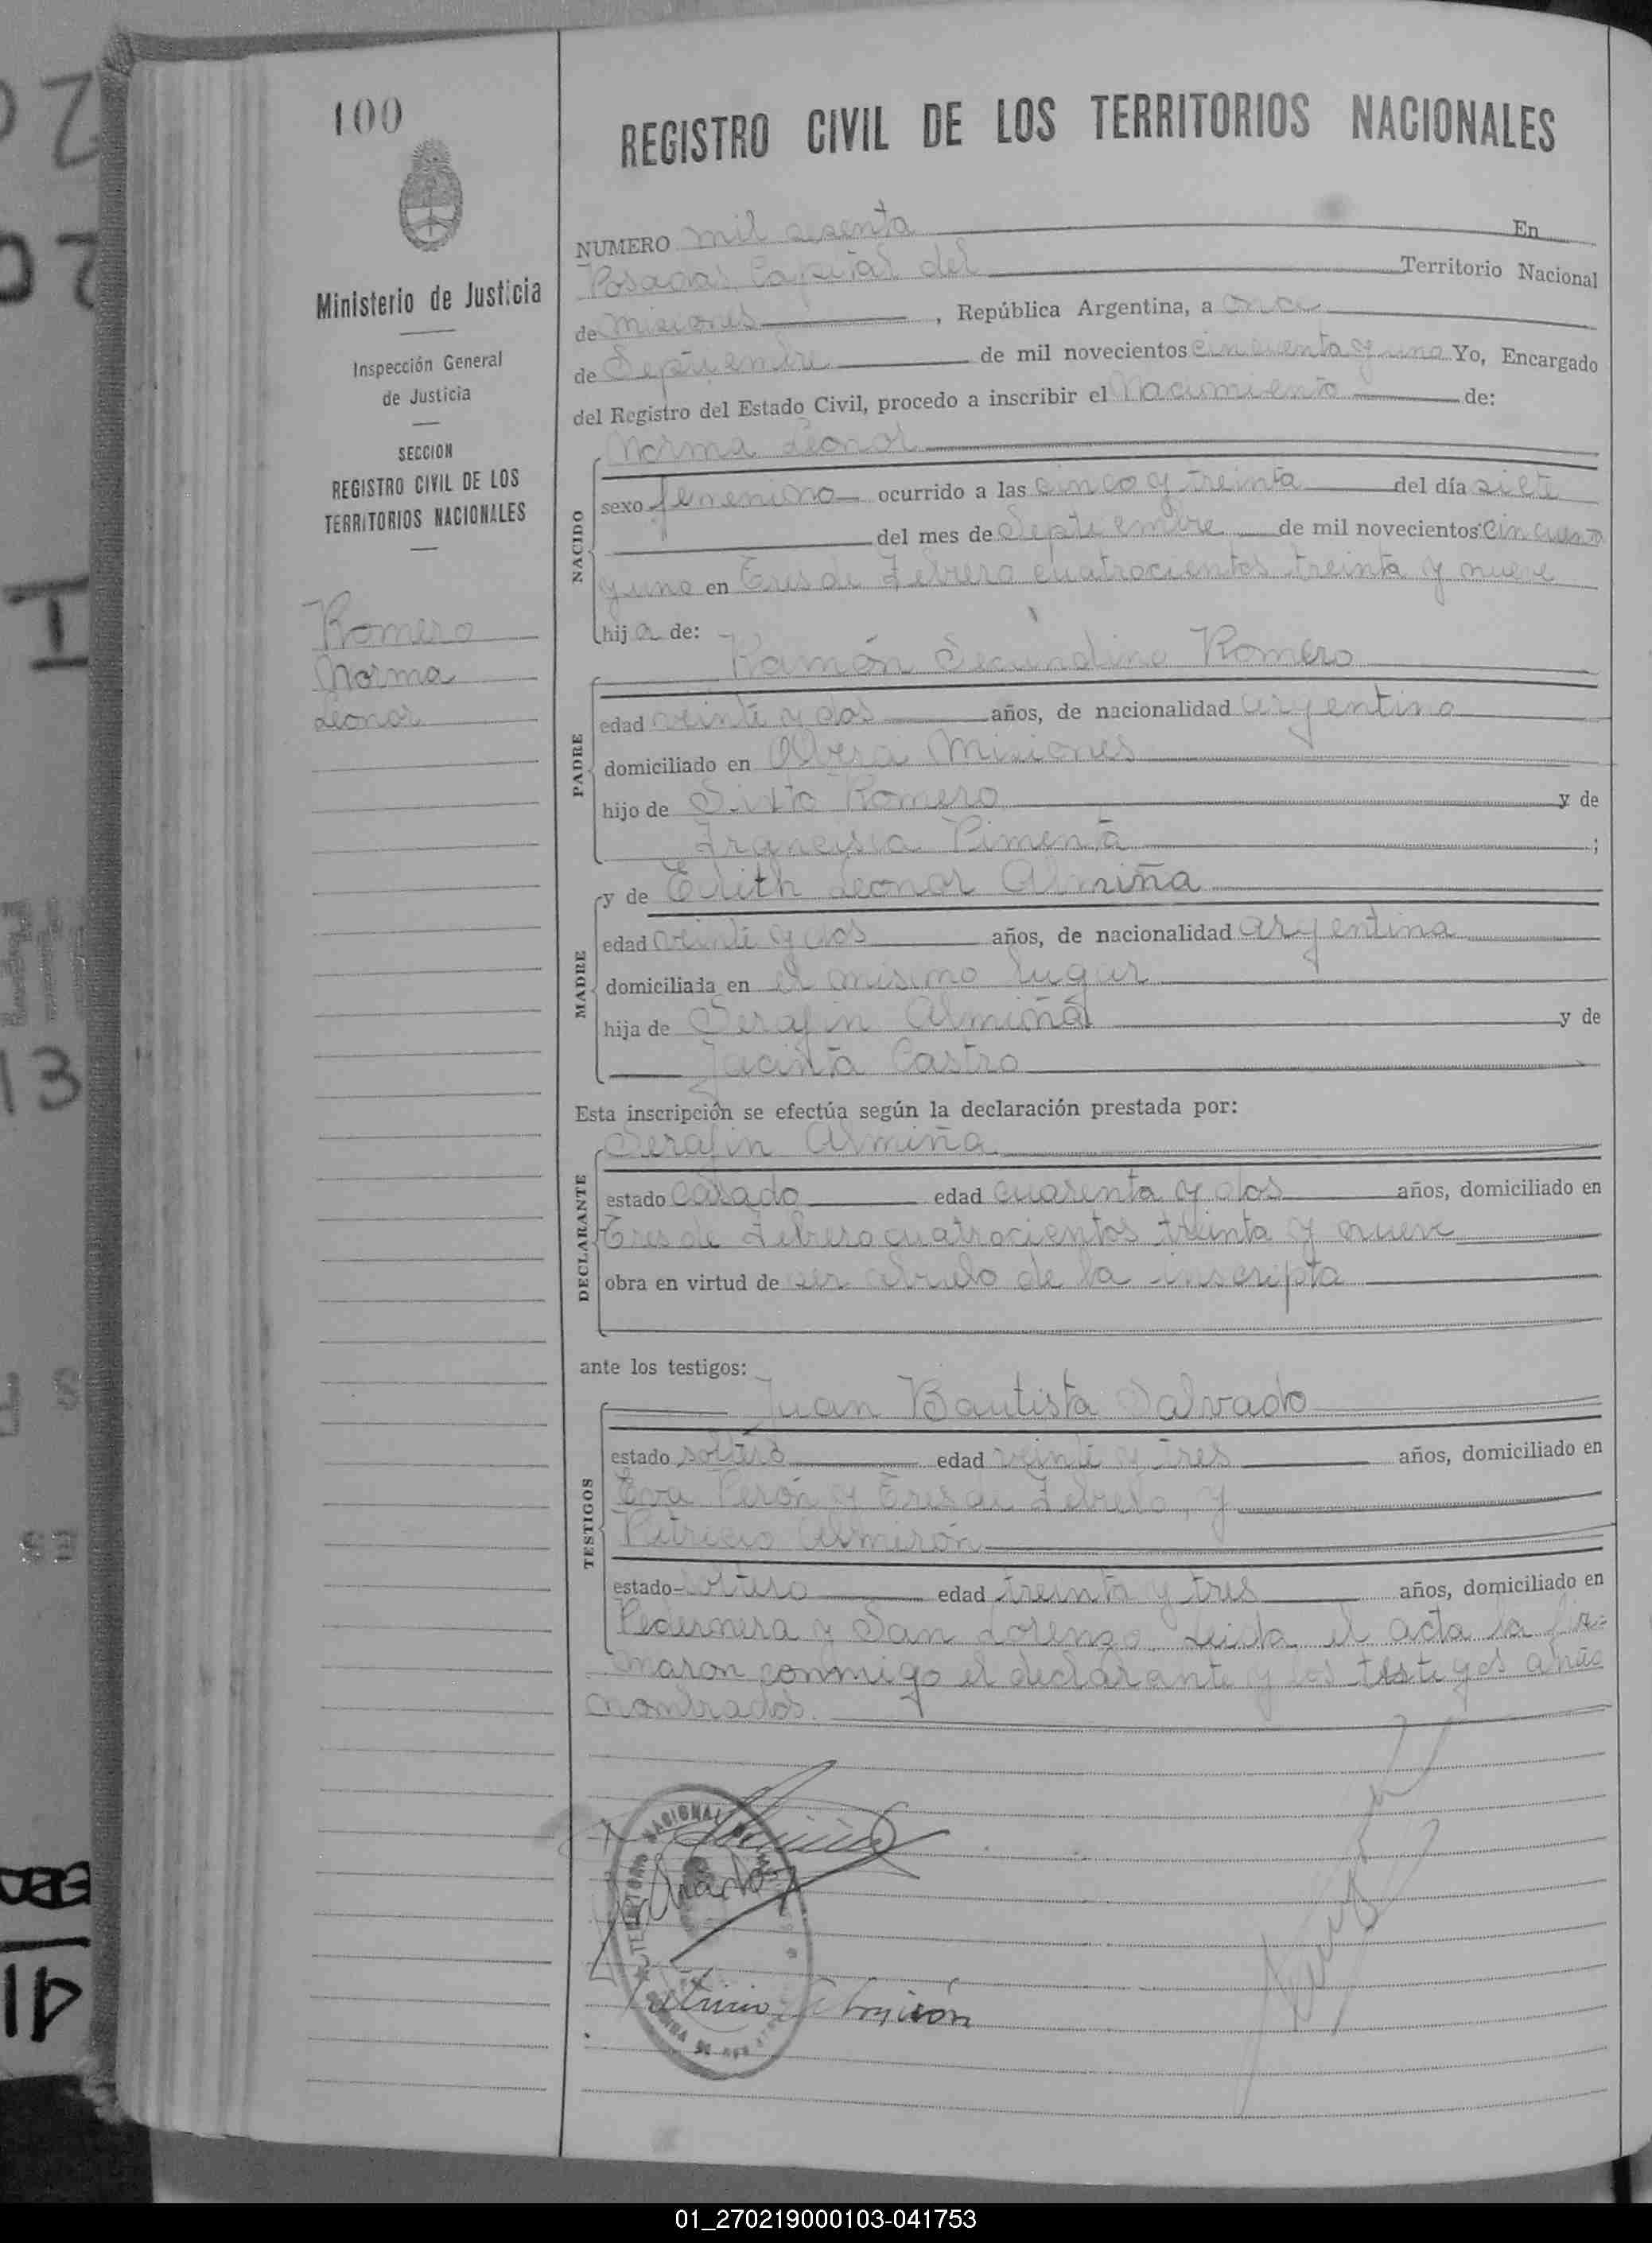 100
REGISTRO CIVIL DE LOS TERRITORIOS NACIONALES
Ministerio de Justicia
Inspección General
de Justicia
SECCION
REGISTRO CIVIL DE LOS
TERRITORIOS NACIONALES
Romero
Norma
Leonor
NUMERO mil sesenta En
Posadas Capital del Territorio Nacional
de Misiones, República Argentina, a once
de Septiembre de mil novecientos cincuenta y uno Yo, Encargado
del Registro del Estado Civil, procedo a inscribir el Nacimiento de:
NACIDO
Norma Leonor
sexo femenino ocurrido a las cinco y treinta del día siete
del mes de Septiembre de mil novecientos cincuenta
y uno en Tres de Febrero cuatrocientos treinta y nueve
hija de:
PADRE
Ramón Secundino Romero
edad veinte y dos años, de nacionalidad argentino
domiciliado en Oberá Misiones
hijo de Sixto Romero y de
Francisca Pimenta;
MADRE
y de Edith Leonor Almiña
edad veinte y dos años, de nacionalidad argentina
domiciliada en el mismo lugar
hija de Serafin Almiña y de
Jacinta Castro
Esta inscripción se efectúa según la declaración prestada por:
DECLARANTE
Serafin Almiña
estado casado edad cuarenta y dos años, domiciliado en
Tres de Febrero cuatrocientos treinta y nueve
obra en virtud de ser abuelo de la inscripta
ante los testigos:
TESTIGOS
Juan Bautista Salvado
estado soltero edad veinte y tres años, domiciliado en
Eva Perón y Tres de Febrero, y
Patricio Almirón
estado soltero edad treinta y tres años, domiciliado en
Pedernera y San Lorenzo. Leida el acta la fir=
maron conmigo el declarante y los testigos ante
nombrados.
TERRITORIO NACIONAL
01_270219000103-041753